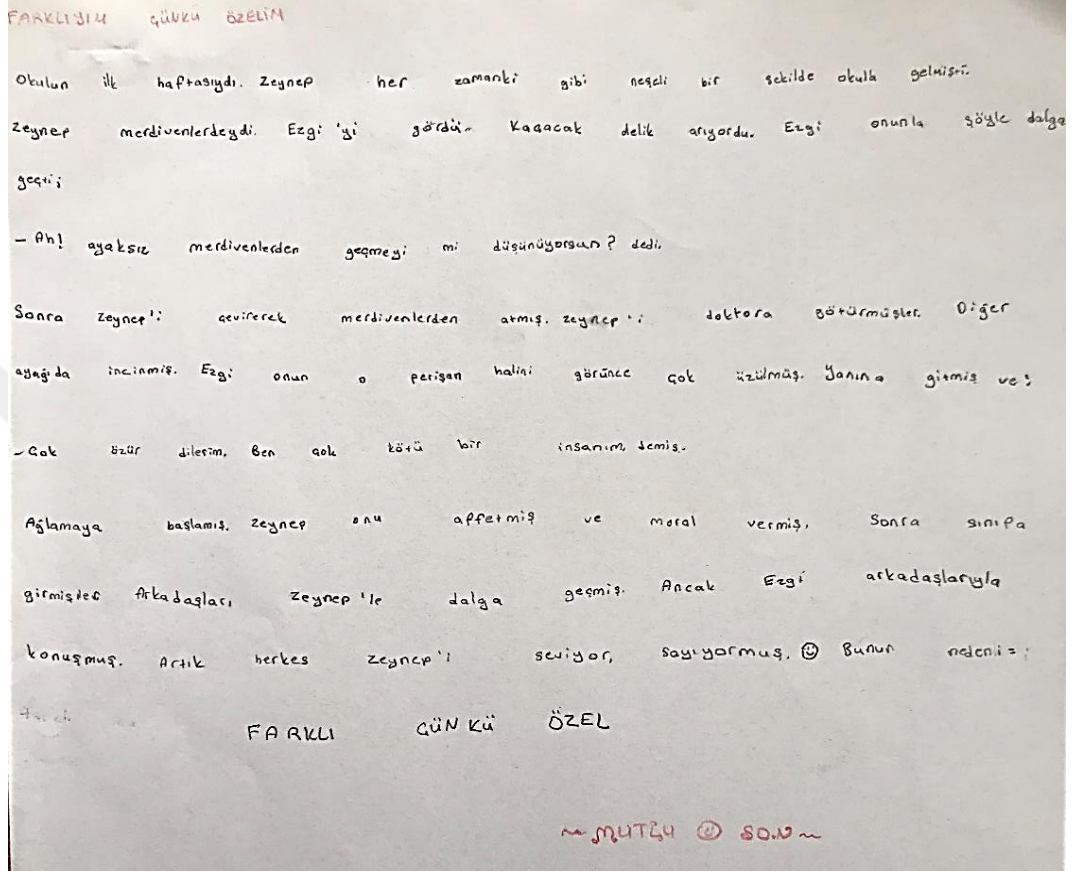 FARKLIYIM ÇÜNKÜ ÖZELİM
Okulun ilk haftasıydı. Zeynep her zamanki gibi neşeli bir şekilde okula gelmişti.
Zeynep merdivenlerdeydi. Ezgi 'yi gördü. Kaçacak delik arıyordu. Ezgi onunla şöyle dalga
geçti;
- Ah! ayaksız merdivenlerden geçmeyi mi düşünüyorsun? dedi.
Sonra Zeynep'i çevirerek merdivenlerden atmış. Zeynep'i doktora götürmüşler. Diğer
ayağı da incinmiş. Ezgi onun o perişan halini görünce çok üzülmüş. Yanına gitmiş ve:
- Çok özür dilerim. Ben çok kötü bir insanım, demiş.
Ağlamaya başlamış. Zeynep onu affetmiş ve moral vermiş. Sonra sınıfa
girmişler Arkadaşları Zeynep'le dalga geçmiş. Ancak Ezgi arkadaşlarıyla
konuşmuş. Artık herkes Zeynep'i seviyor, sayıyormuş. ☺ Bunun nedeni =;
FARKLI ÇÜNKÜ ÖZEL
~ MUTLU ☺ SON ~